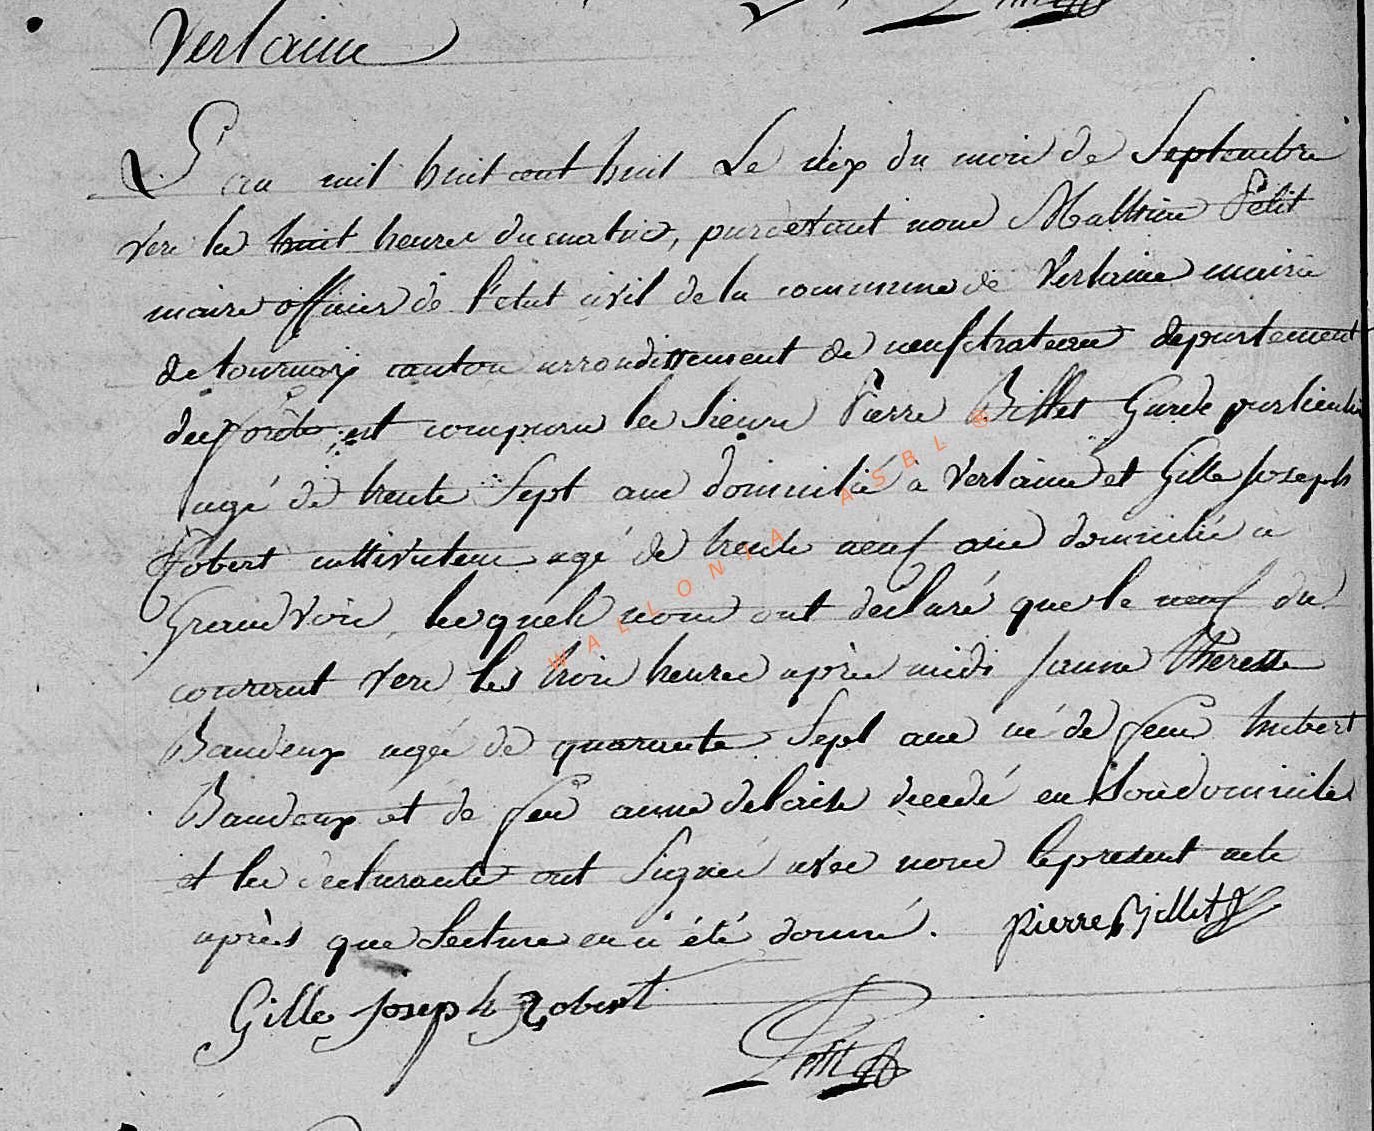 Verlaine
L'an mil huit cent huit Le dix du mois de Septembre
vers les huit heures du matin, pardevant nous Mathieu Petit
maire officier de l'état civil de la commune de Verlaine mairie
de tournay canton arrondissement de neufchateau departement
des forêts est comparu les sieurs Pierre Billet Garde particulier
agé de trente Sept ans domicilié à Verlaine et Gille Joseph
Robert cultivateur agé de trente neuf ans domicilié a
Grand Voir, lesquels nous ont déclaré que le neuf du
courant vers les trois heures après midi Jeanne Theresse
Baudeux agée de quarante Sept ans né de feu hubert
Baudeux et de feu anne decédé en Son domicile
et les declarants ont Signés avec nous le present acte
après que Lecture en a été donné. Pierre Billet
Gille Joseph Robert
Petit
WALLONIA ASBL ©